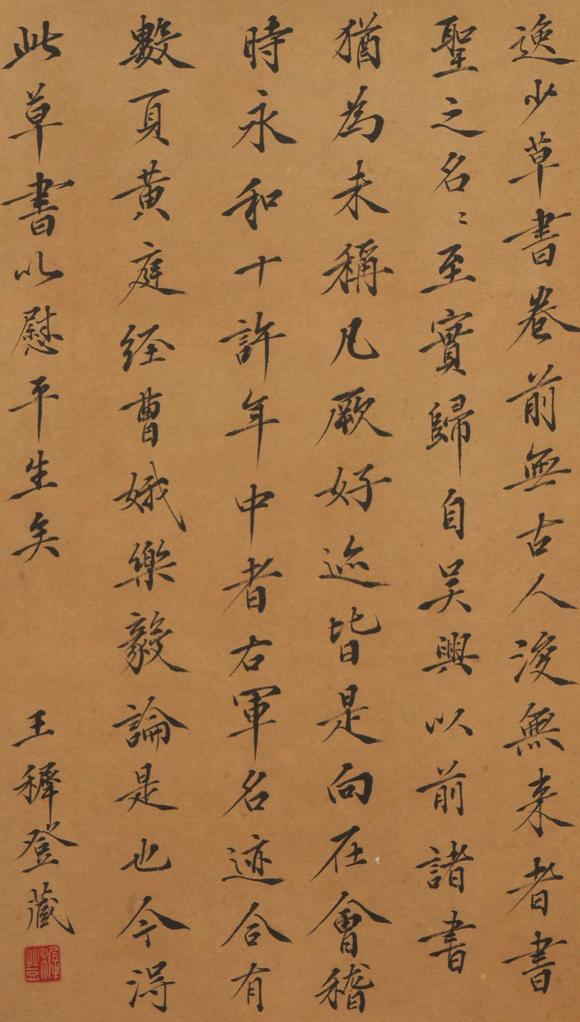 逸少草書卷前無古人後無来者書
聖之名〻至實歸自吴興以前諸書
猶為未稱凡厥好迹皆是向在會稽
時永和十許年中者右軍名迹合有
數頁黄庭经曹娥樂毅論是也今得
此草書以慰平生矣
王穉登藏